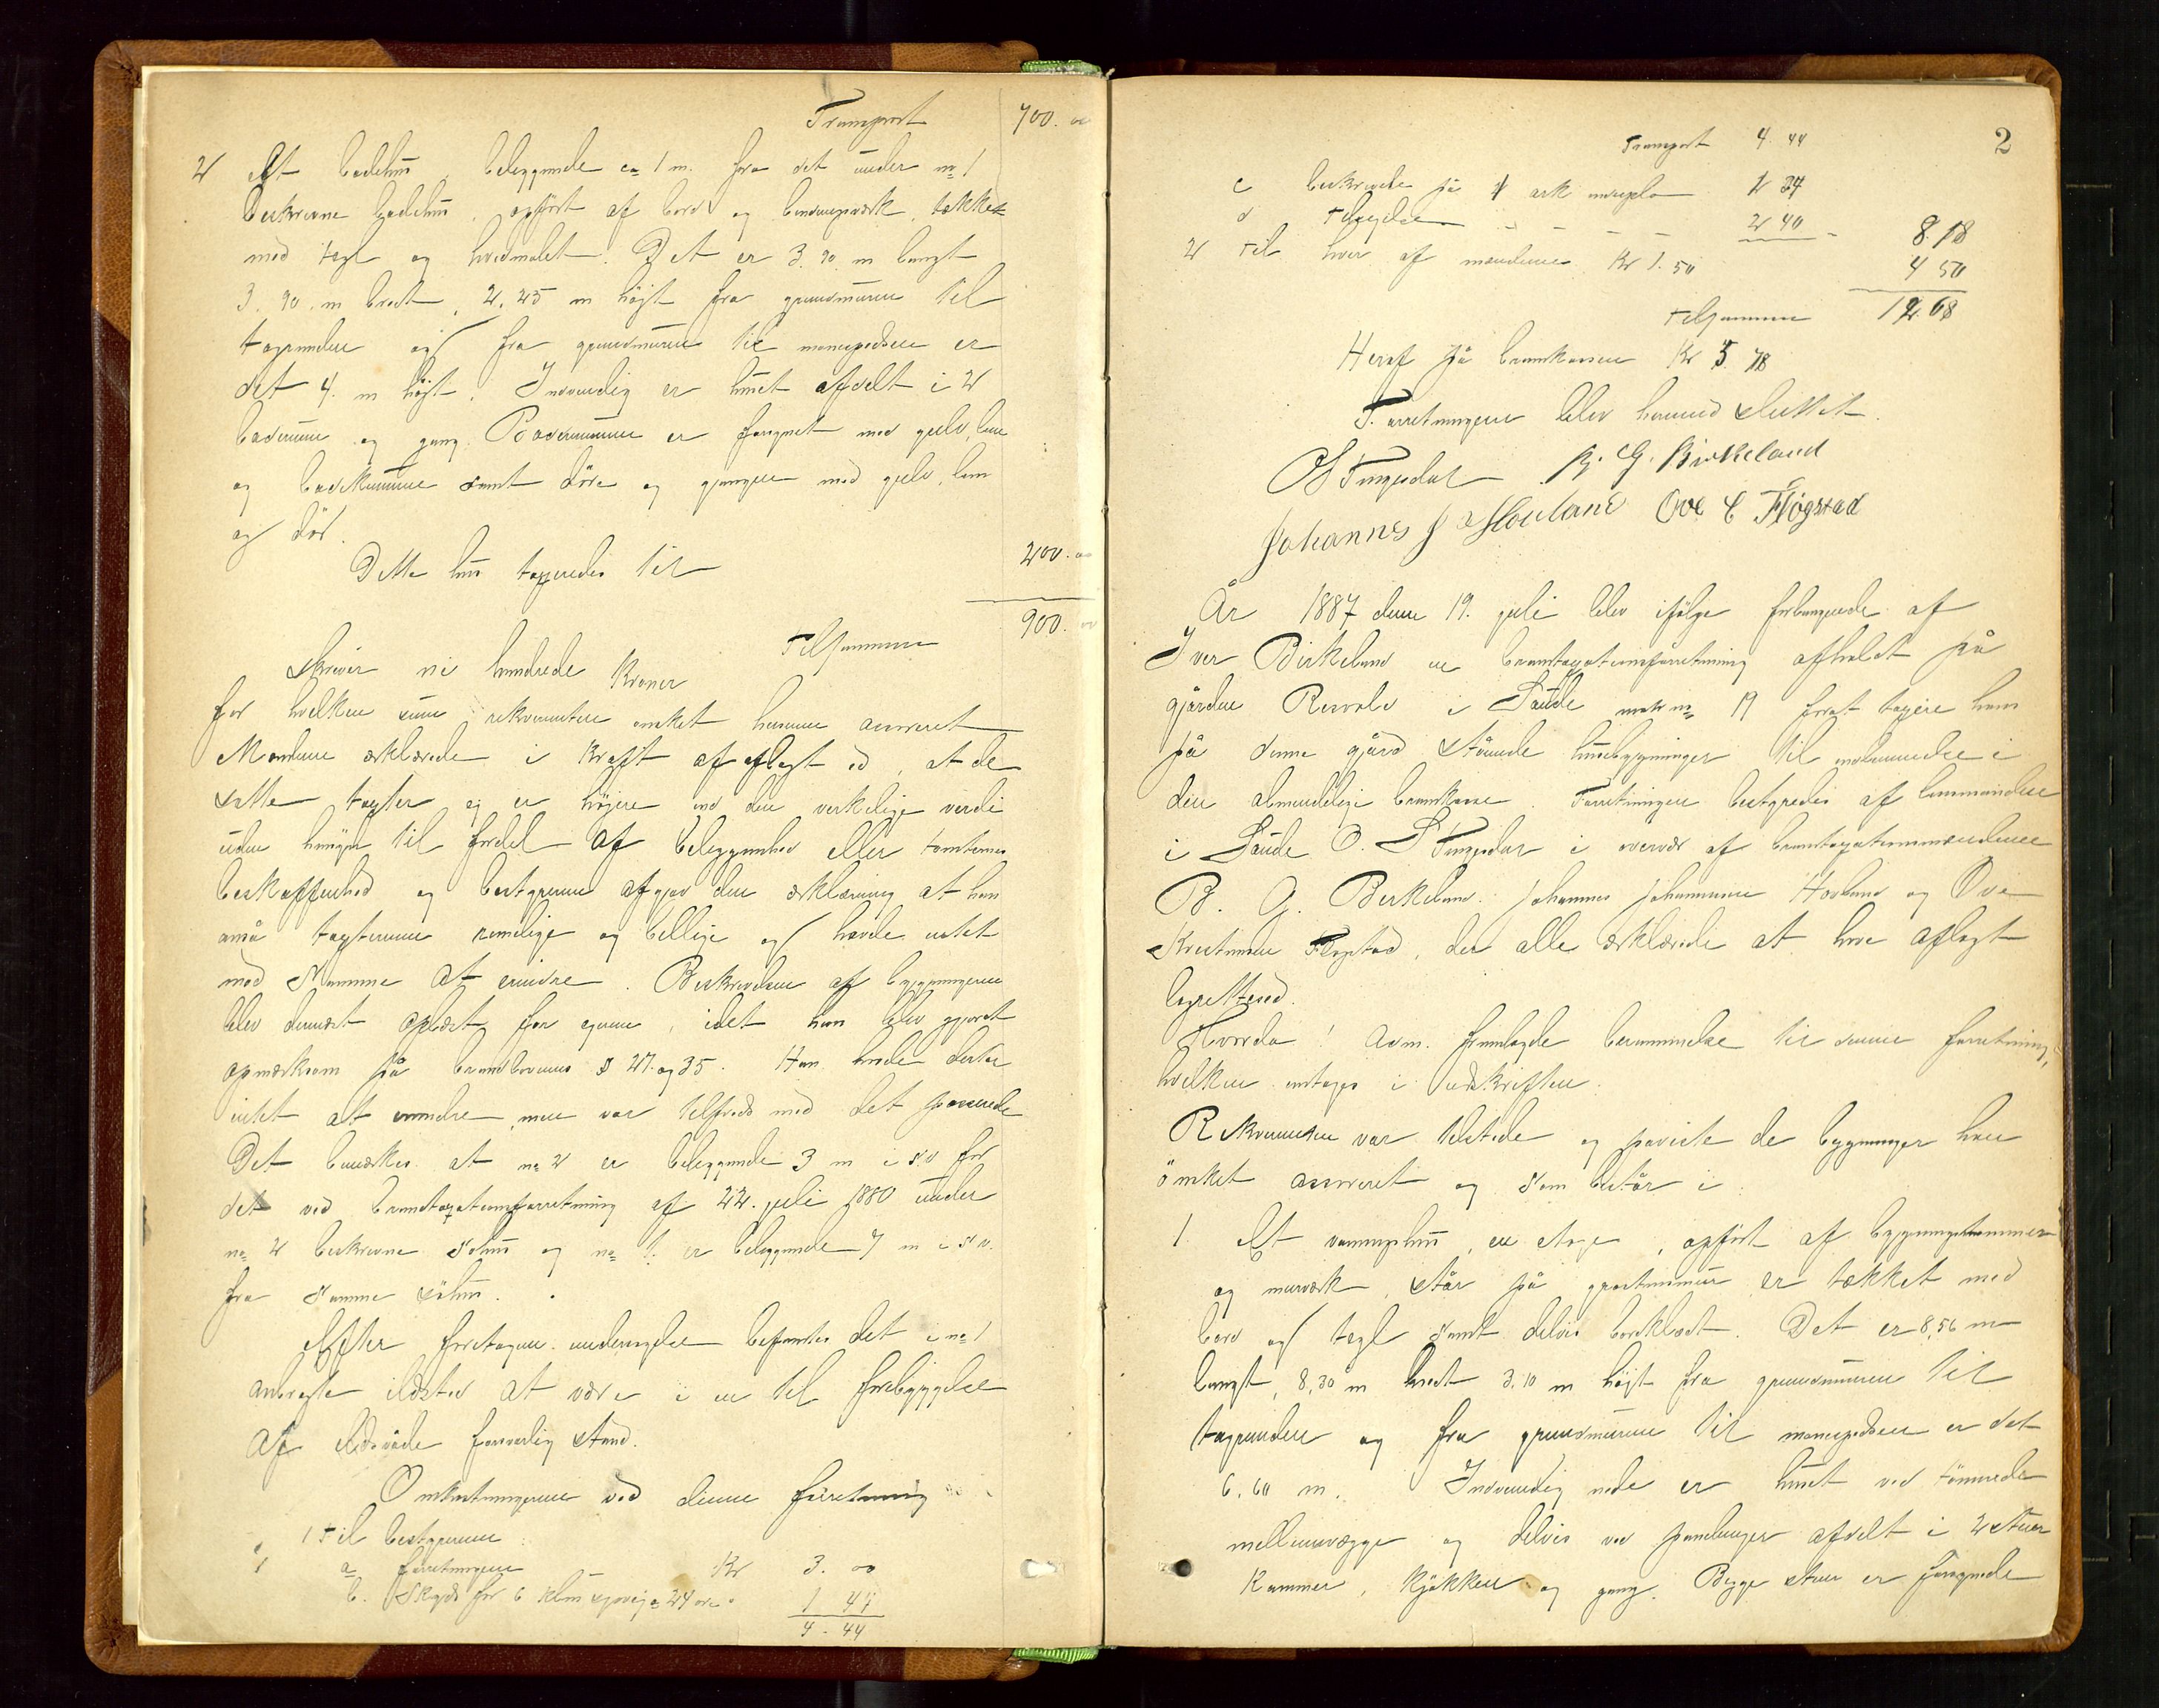 Transport 700.00
2 Et badehus, beliggende ca 1 m. fra det under no 1
beskrevne badehus, opført af bord og bindingsværk, tækket
med tegl og hvidmalet. Det er 3.90 m langt
3.90 m bredt, 2.25 m højt fra grundmuren til
tagrenden og fra grundmuren til mønespidsen er
det 4. m højt. Indvendig er huset afdelt i 2
baderum og gang. Baderummene er forsynet med gulv, lem
og badekumme samt døre og gangen med gulv, lem
og dør.
Dette hus taxeredes til 200.00
Tilsammen 900.00
Skriver ni hundrede Kroner
for hvilken sum rekvirenten ønsket husene assureret
Mændene erklærede i kraft af aflagt ed, at de
satte taxter ej er højere end den verkelige verdi
uden hensyn til fordel af beliggenhed eller tomternes
beskaffenhed og bestyreren afgav den erklæring at han
anså taxterne rimelige og bellige og havde intet
mod samme at erindre. Beskrivelsen af bygningerne
blev dernæst oplæst for egeren, idet han blev gjort
opmærksom på brandlovens § 27. og 35. Han havde derfor
intet at erindre, men var tilfreds med det passerede
Det bemærkes at no 2 er beliggende 3 m i sv for
det ved brandtaxationsforretning af 22. juli 1880 under
no 2 beskrevne søhus og no 1. er beliggende 7 m i sv.
fra samme søhus.
Efter foretagen undersøgelse befantes det i no 1
anbragte ildsted at være i en til forebyggelse
af ildsvåde forsvarlig stand.
Omkostningerne ved denne forretning
1 Til bestyreren
a forretningen Kr 3.00
b. Skyds for 6 klm sjøvej a 24 øre 1 44
4.44
2
Transport 4.44
c beskrivelse på ark 1 34
d Tilsigelse 2 40 8.18
2 Til hver af mændene Kr 1.50 4 50
Tilsammen 12.68
Heraf på brandkassen Kr 5.78
Forretningen blev hermed sluttet.
OS Tingsdal B. G. Birkeland
Johannes J Hovland Ove C Fløgstad
År 1887 den 19. juli blev ifølge forlangende af
Iver Birkeland en brandtaxationsforretning afholdt på
gården Risvold i Saude matr no 19 forat taxere hans
på denne gård stående husebygninger til indlemmelse i
den almindelige brandkasse. Forretningen bestyredes af lensmanden
i Saude O. S Tingsdal i overvær af brandtaxationsmændene
B. G. Birkeland. Johannes Johannesen Hovland og Ove
Kristensen Fløgstad, der alle erklærede at have aflagt
lagrettesed.
Hvorda! Adm. fremlagde berammelse til denne forretning,
hvilken indtages i udskriften.
Rekvirenten var tilstede og påviste de bygninger han
ønsket assureret og som består i
1. Et våningshus, en etage, opført af bygningstømmer
og murværk, står på gråstensmur er tækket med
bord og tegl samt delvis bordklædt. Det er 8,56 m
langt, 8,30 m bredt 3.10 m højt fra grundmuren til
tagrenden og fra grundmuren til mønespidsen er det
6.60 m. Indvendig nede er huset ved tømrede
mellemvægge og delvis ved panelinger afdelt i 2 stuer
Kammer, kjøkken og gang. Begge stuer er forsynede